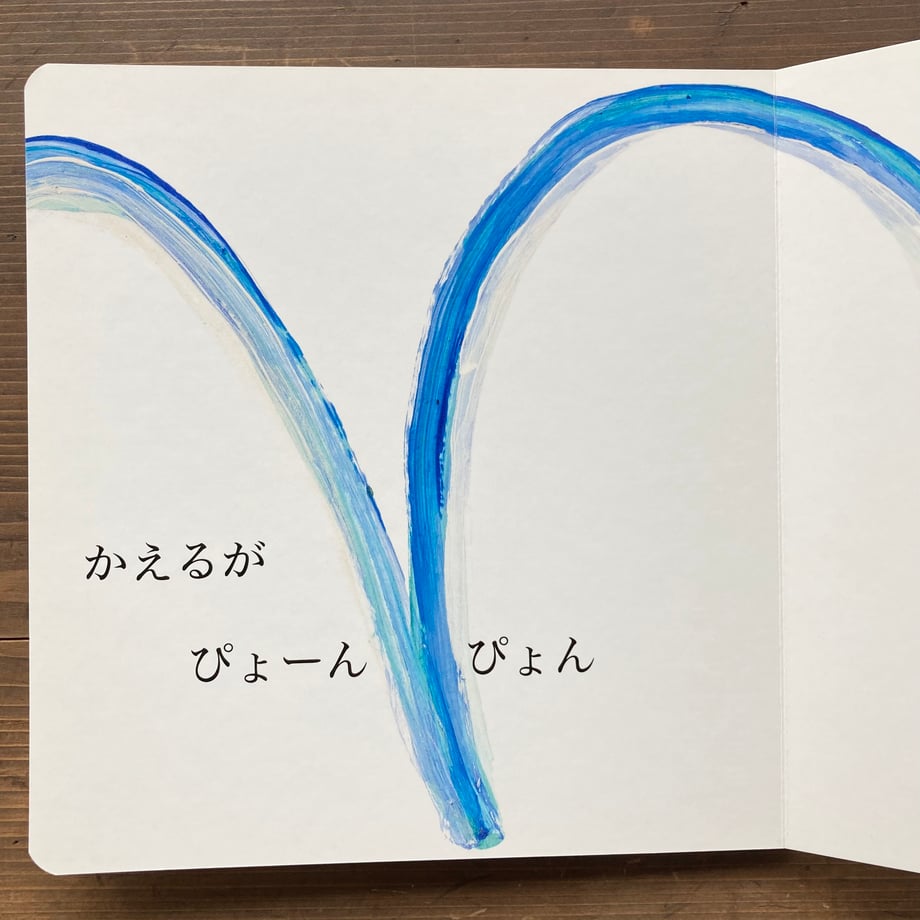 かえるが
ぴょーん ぴょん